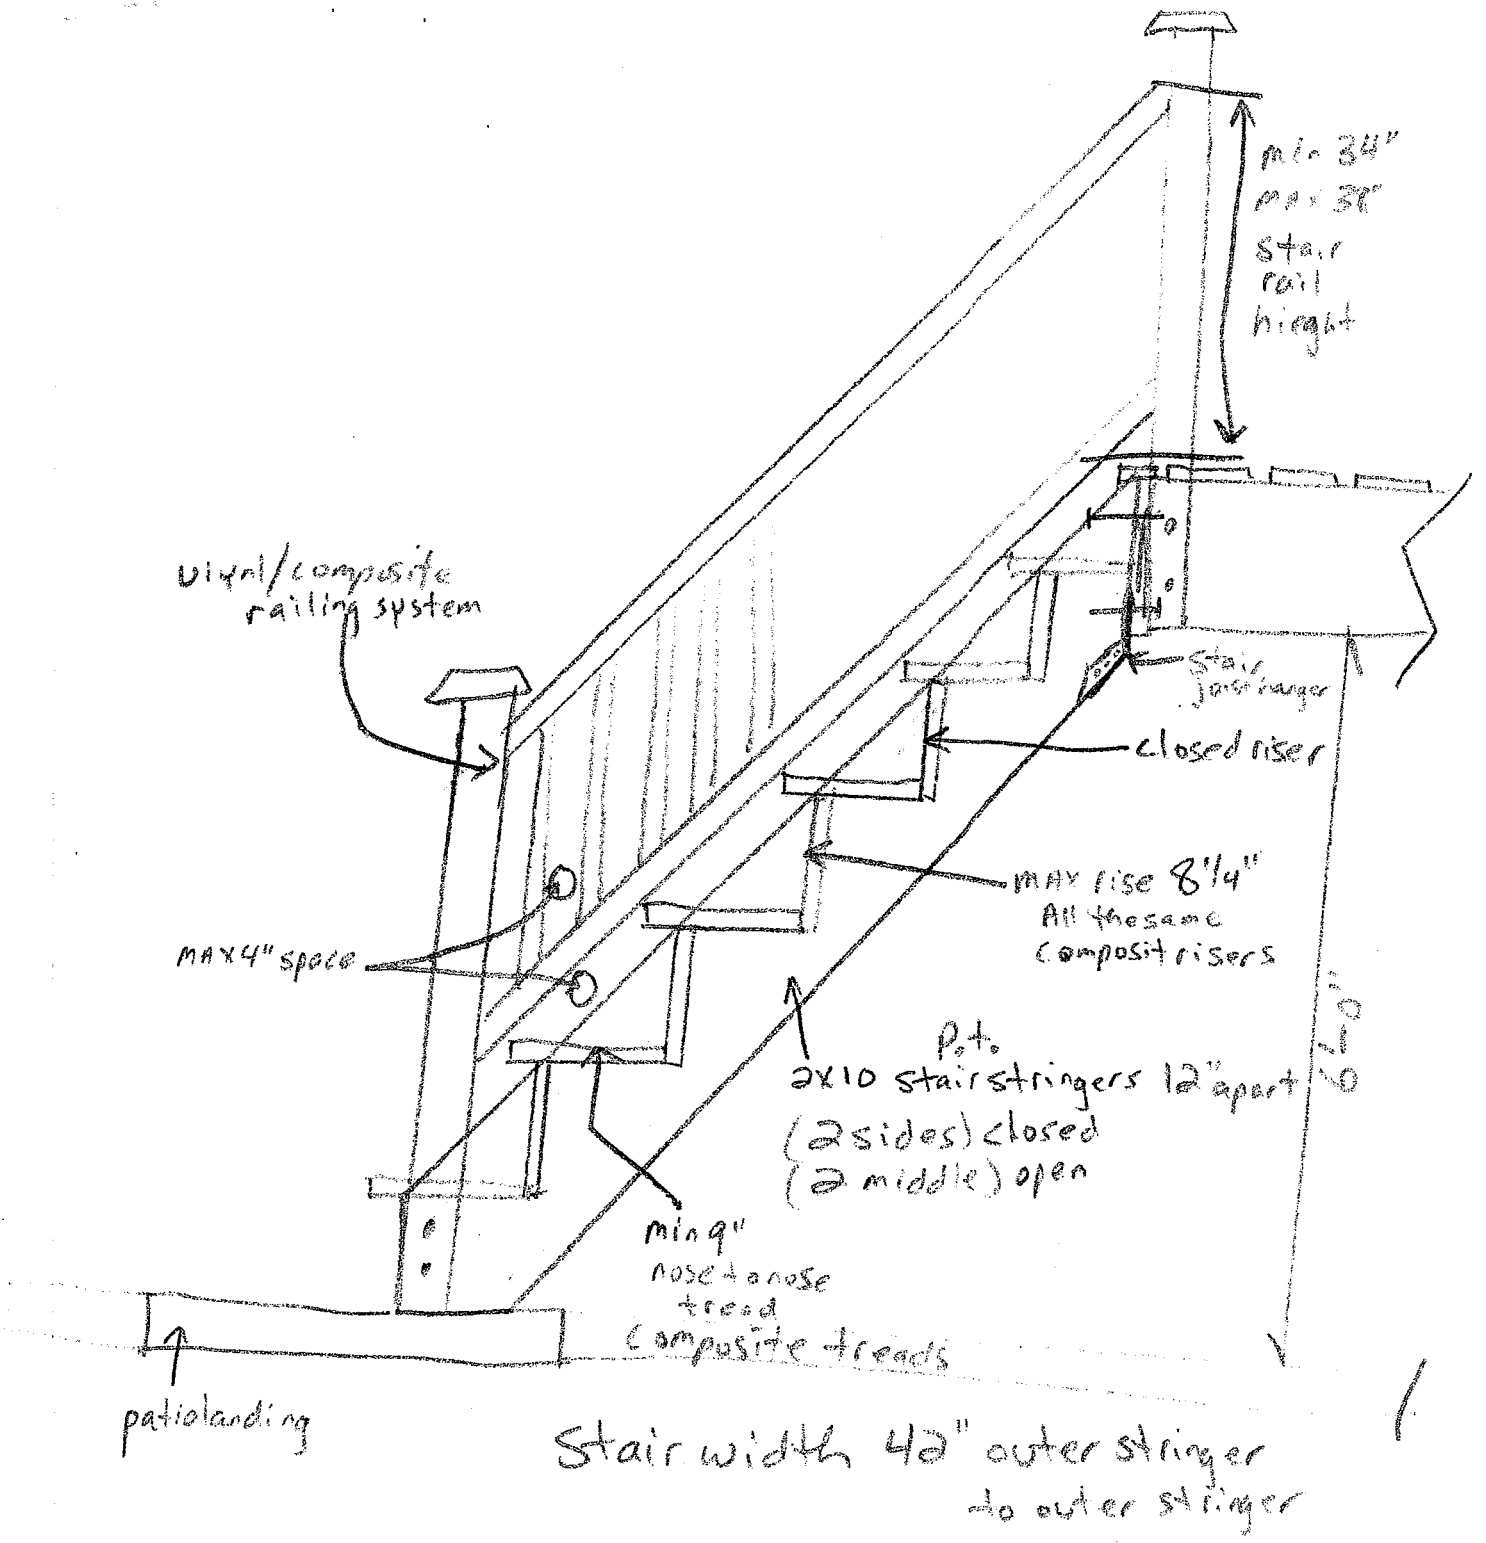 min 34"
max 38"
stair
rail
hieght
viynl/composite
railing system
stair
joist hanger
closed riser
MAX rise 8 1/4"
All the same
composit risers
MAX 4" space
P.t.
2x10 stair stringers 12" apart
(2 sides) closed
(2 middle) open
min 9"
nose to nose
tread
composite treads
patio landing
Stair width 42" outer stringer
to outer stringer